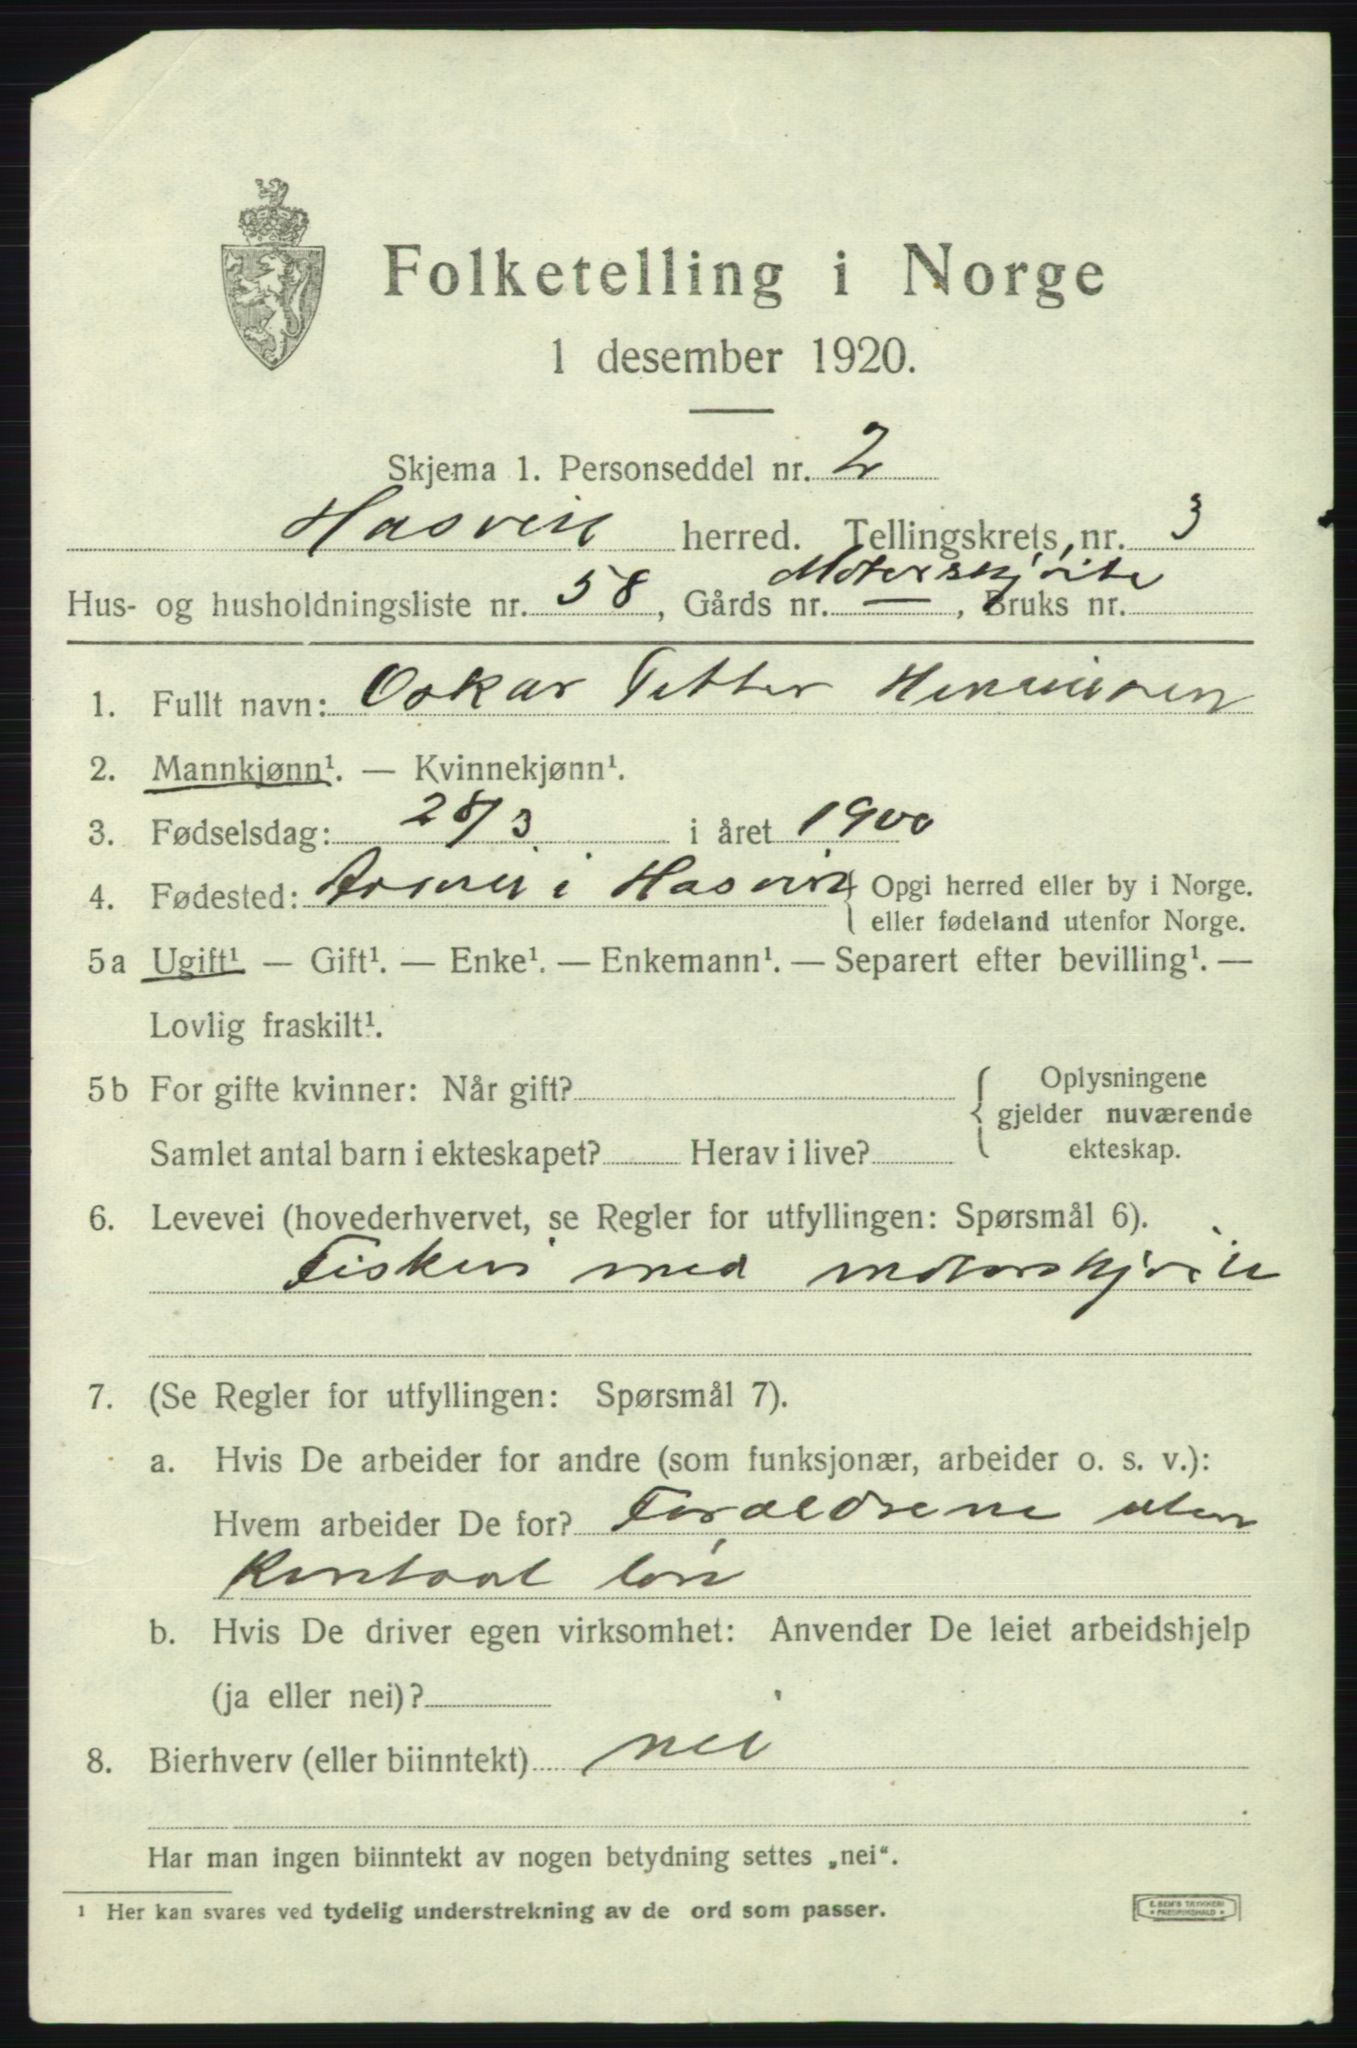 Folketelling i Norge
1 desember 1920.
Skjema 1. Personseddel nr. 2
Hasvik herred. Tellingskrets nr. 3
Motorskjøite
Hus- og husholdningsliste nr. 58, Gårds nr. —, Bruks nr.
1. Fullt navn: Oskar Petter Henriksen
2. Mannkjønn¹. — Kvinnekjønn¹.
3. Fødselsdag: 28/3 i året 1900
4. Fødested: i Hasvik { Opgi herred eller by i Norge.
eller fødeland utenfor Norge.
5a Ugift¹ — Gift¹. — Enke¹. — Enkemann¹. — Separert efter bevilling¹. —
Lovlig fraskilt¹.
5b For gifte kvinner: Når gift? { Oplysningene
gjelder nuværende
Samlet antal barn i ekteskapet? Herav i live? ekteskap.
6. Levevei (hovederhvervet, se Regler for utfyllingen: Spørsmål 6).
Fiskeri med motorskjøite
7. (Se Regler for utfyllingen: Spørsmål 7).
a. Hvis De arbeider for andre (som funksjonær, arbeider o. s. v.):
Hvem arbeider De for? Foraldrene uten
Kontant løn
b. Hvis De driver egen virksomhet: Anvender De leiet arbeidshjelp
(ja eller nei)?
8. Bierhverv (eller biinntekt) nei
Har man ingen biinntekt av nogen betydning settes „nei“.
¹ Her kan svares ved tydelig understrekning av de ord som passer.
E. SEM'S TRYKKERI
* FREDRIKSHALD *